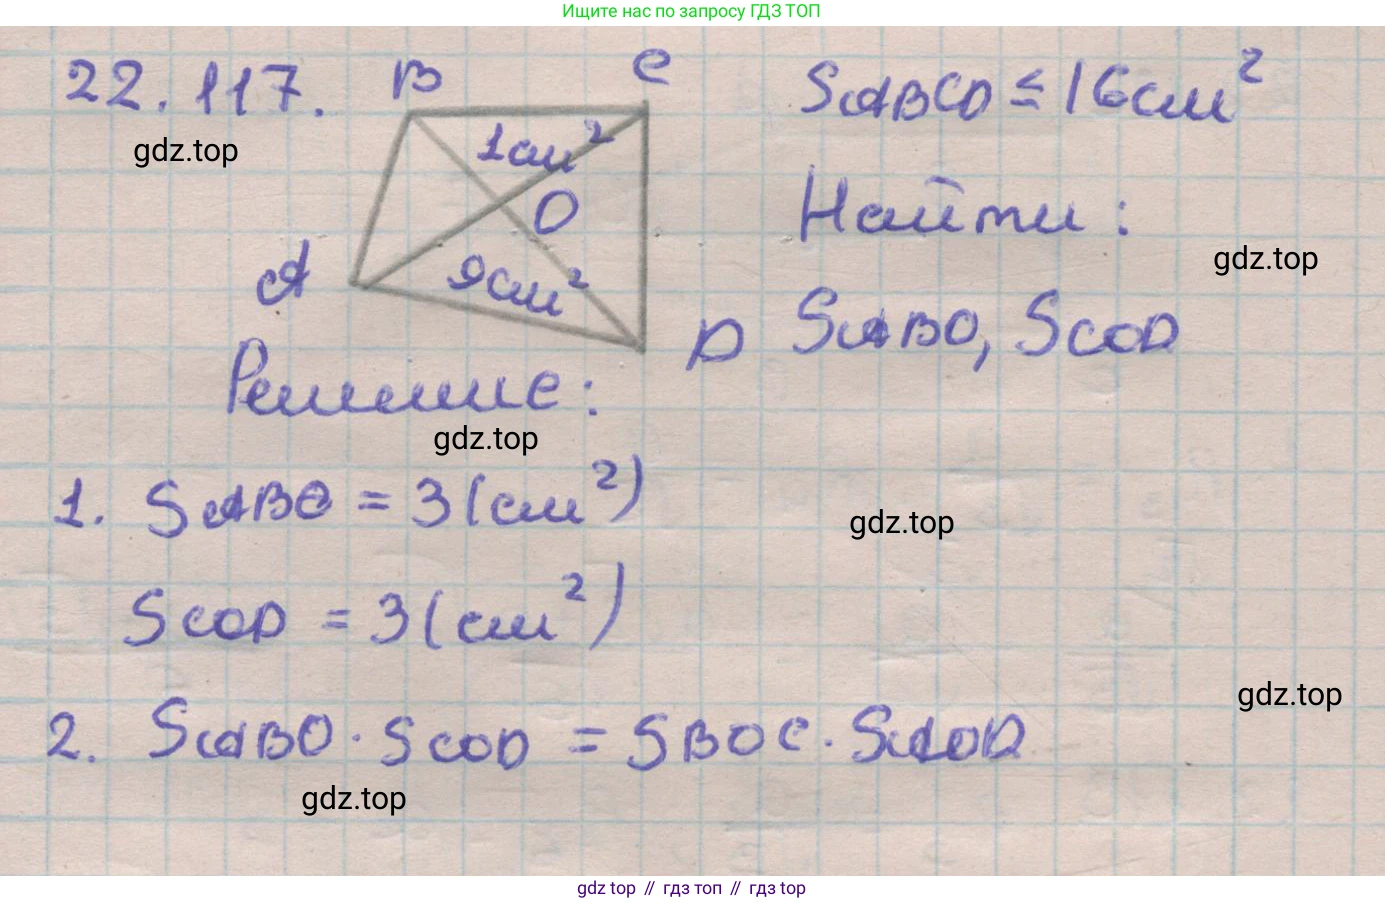 Ищите нас по запросу ГДЗ ТОП
22.117.
B
C
1см²
O
A
9см²
D
SABCD ≤ 16см²
gdz.top
Найти:
gdz.top
SABO, SCOD
Решение:
gdz.top
1. SABO = 3(см²)
gdz.top
SCOD = 3(см²)
gdz.top
2. SABO · SCOD = SBOC · SAOD
gdz.top
gdz top // гдз топ // gdz top